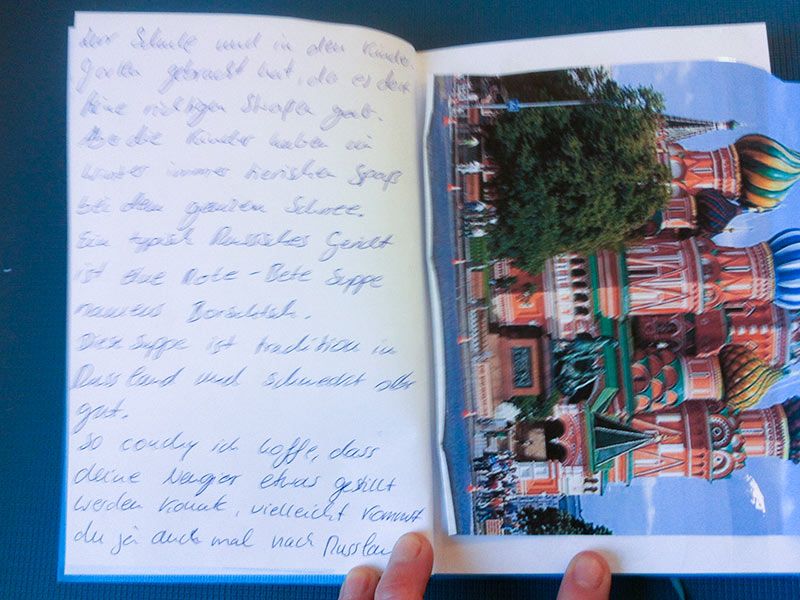 der Schule und in den Kinder-
garten gebracht hat, da es dort
keine richtigen Straßen gab.
die Kinder haben im
Winter immer tierischen Spaß
bei dem ganzen Schnee.
Ein typisch Russisches Gericht
ist eine Rote-Bete Suppe
namens Borschtsch.
Diese Suppe ist tradition in
Russland und schmeckt
gut.
So ich hoffe, dass
deine Neugier etwas gestillt
werden konnte, vielleicht kommst
du ja auch mal nach Russlan